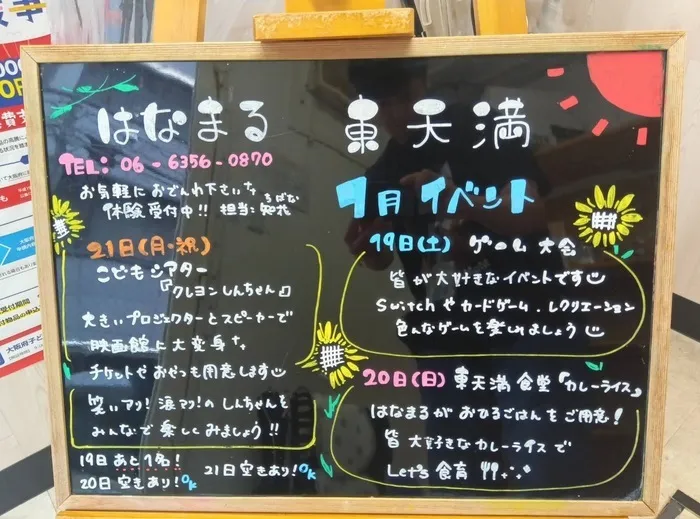 はなまる 東天満
TEL: 06-6356-0870
お気軽におでんわ下さい
体験受付中!! 担当:知花
ちばな
21日(月・祝)
こどもシアター
『クレヨンしんちゃん』
大きいプロジェクターとスピーカーで
映画館に大変身
チケットやおやつも用意します
笑いアリ!涙アリ!のしんちゃんを
みんなで楽しくみましょう!!
19日あと1名!
20日空きあり!OK
21日空きあり!OK
7月 イベント
19日(土) ゲーム大会
皆が大好きなイベントです
Switchやカードゲーム、レクリエーション
色んなゲームを楽しみましょう
20日(日) 東天満食堂『カレーライス』
はなまるがおひるごはんをご用意!
皆大好きなカレーライスで
Let's 食育
大阪府子ど